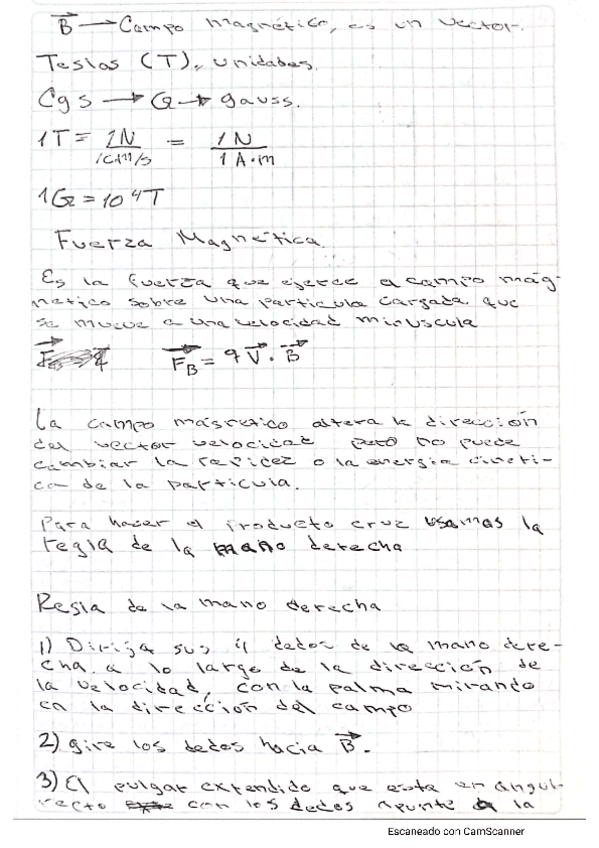 B → Campo magnético, es un vector.
Teslas (T), unidades.
Cgs → G → gauss.
1T = 1N / 1C·m/s = 1N / 1A·m
1G = 10⁴T
Fuerza Magnética.
Es la fuerza que ejerce el campo mág-
netico sobre una particula cargada que
se mueve a una velocidad minuscula
F_B = q V · B
La campo másnetico altera la dirección
del vector velocidad pero no puede
cambiar la rapidez o la energia cineti-
ca de la particula.
Para hacer el producto cruz usamos la
regla de la mano derecha
Regla de la mano derecha
1) Dirija sus 4 dedos de la mano dere-
cha a lo largo de la dirección de
la velocidad, con la palma mirando
en la dirección del campo
2) gire los dedos hacia B.
3) El pulgar extendido que esta en angul
recto con los dedos apunta a la
Escaneado con CamScanner